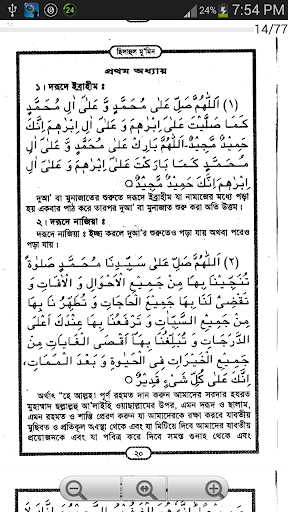 24% 7:54 PM
14/77
হিলাহুল মু'মিন
প্রথম অধ্যায়
১। দরূদে ইব্রাহীম ঃ
(১) اَللّٰهُمَّ صَلِّ عَلٰى مُحَمَّدٍ وَّ عَلٰى اٰلِ مُحَمَّدٍ
كَمَا صَلَّيْتَ عَلٰى اِبْرٰهِمَ وَ عَلٰى اٰلِ اِبْرٰهِمَ اِنَّكَ
حَمِيْدٌ مَّجِيْدٌ-اَللّٰهُمَّ بَارِكْ عَلٰى مُحَمَّدٍ وَّ عَلٰى اٰلِ
مُحَمَّدٍ كَمَا بَارَكْتَ عَلٰى اِبْرٰهِمَ وَ عَلٰى اٰلِ
اِبْرٰهِمَ اِنَّكَ حَمِيْدٌ مَّجِيْدٌ○
দুআ' বা মুনাজাতের শুরুতে দরূদে ইব্রাহীম যা নামাজের মধ্যে পড়া
হয় একবার পাঠ করে তারপর দুআ' বা মুনাজাত শুরু করা অতি উত্তম।
২। দরূদে নাজিয়া ঃ
দরূদে নাজিয়া ঃ ইচ্ছা করলে দুআ'র শুরুতেও পড়া যায় অথবা পরেও
পড়া যায়।
(২) اَللّٰهُمَّ صَلِّ عَلٰى سَيِّدِنَا مُحَمَّدٍ صَلٰوةً
تُنَجِّيْنَا بِهَا مِنْ جَمِيْعِ الْاَحْوَالِ وَ الْاٰفَاتِ وَ
تَقْضِىْ لَنَا بِهَا جَمِيْعَ الْحَاجَاتِ وَ تُطَهِّرُ نَا بِهَا
مِنْ جَمِيْعِ السَّيِّاٰتِ وَ تَرْفَعُنَا بِهَا عِنْدَكَ اَعْلَى
الدَّرَجَاتِ وَ تُبَلِّغُنَا بِهَا اَقْصَى الْغَايَاتِ مِنْ
جَمِيْعِ الْخَيْرَاتِ فِى الْحَيٰوةِ وَ بَعْدَ الْمَمَاتِ،
اِنَّكَ عَلٰى كُلِّ شَىْءٍ قَدِيْرٌ○
অর্থাৎ "হে আল্লাহ! পূর্ণ রহমত দান করুন আমাদের সরদার হযরত
মুহাম্মাদ ছল্লাল্লহু আ'লাইহি ওয়াছাল্লামের উপর, এমন দরূদ ও ছালাম,
এমন রহমত ও শান্তি প্রেরণ করুন যা আমাদেরকে রক্ষা করবে যাবতীয়
মুছিবত ও প্রতিকূল অবস্থা থেকে এবং যা মিটিয়ে দিবে আমাদের যাবতীয়
প্রয়োজনকে এবং যা পবিত্র করে দিবে সমস্ত গুনাহ থেকে এবং
২০